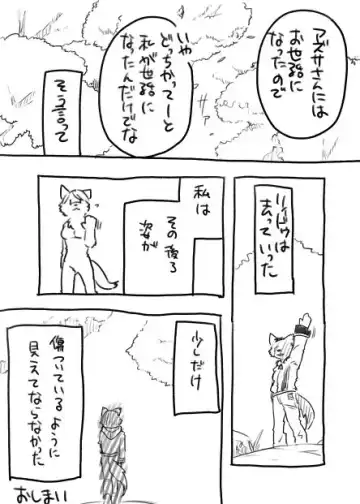 アズサさんには
お世話に
なったので
いや
どっちかってーと
私が世話に
なったんだけどな
そう言って
リィドゥは
去っていった
私は
その後ろ
姿が
少しだけ
傷ついているように
見えてならなかった
おしまい